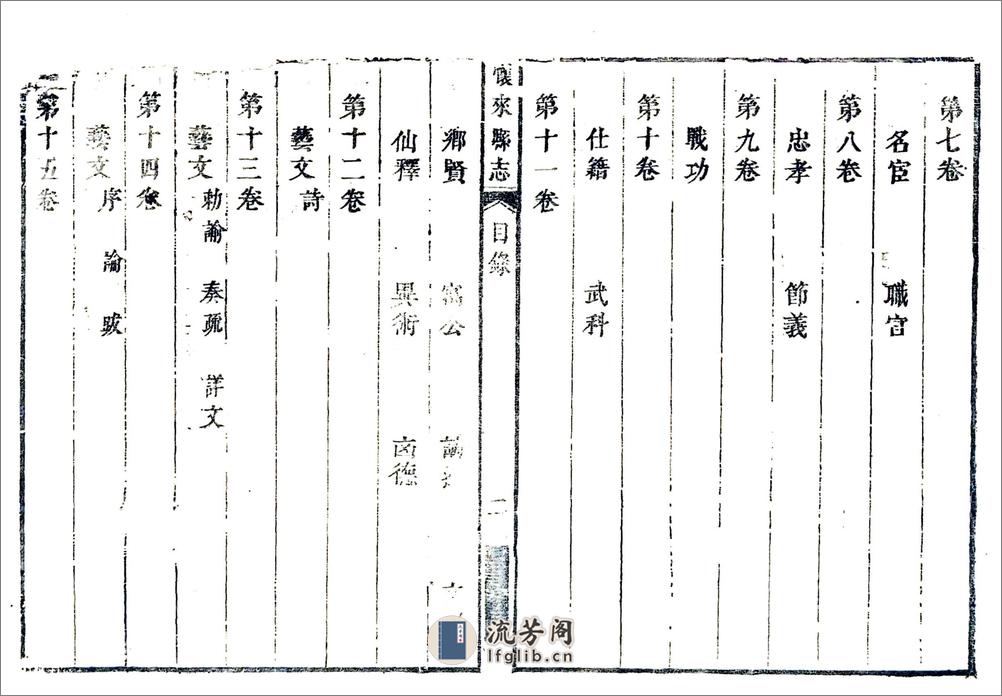 第七卷
名宦 職官
第八卷
忠孝 節義
第九卷
戰功
第十卷
仕籍 武科
第十一卷
懷來縣志 目錄 二
鄉賢
仙釋 異術
第十二卷
藝文 詩
第十三卷
藝文 勅諭 奏疏 詳文
第十四卷
藝文 序 論 跋
第十五卷
流芳阁
lfglib.cn